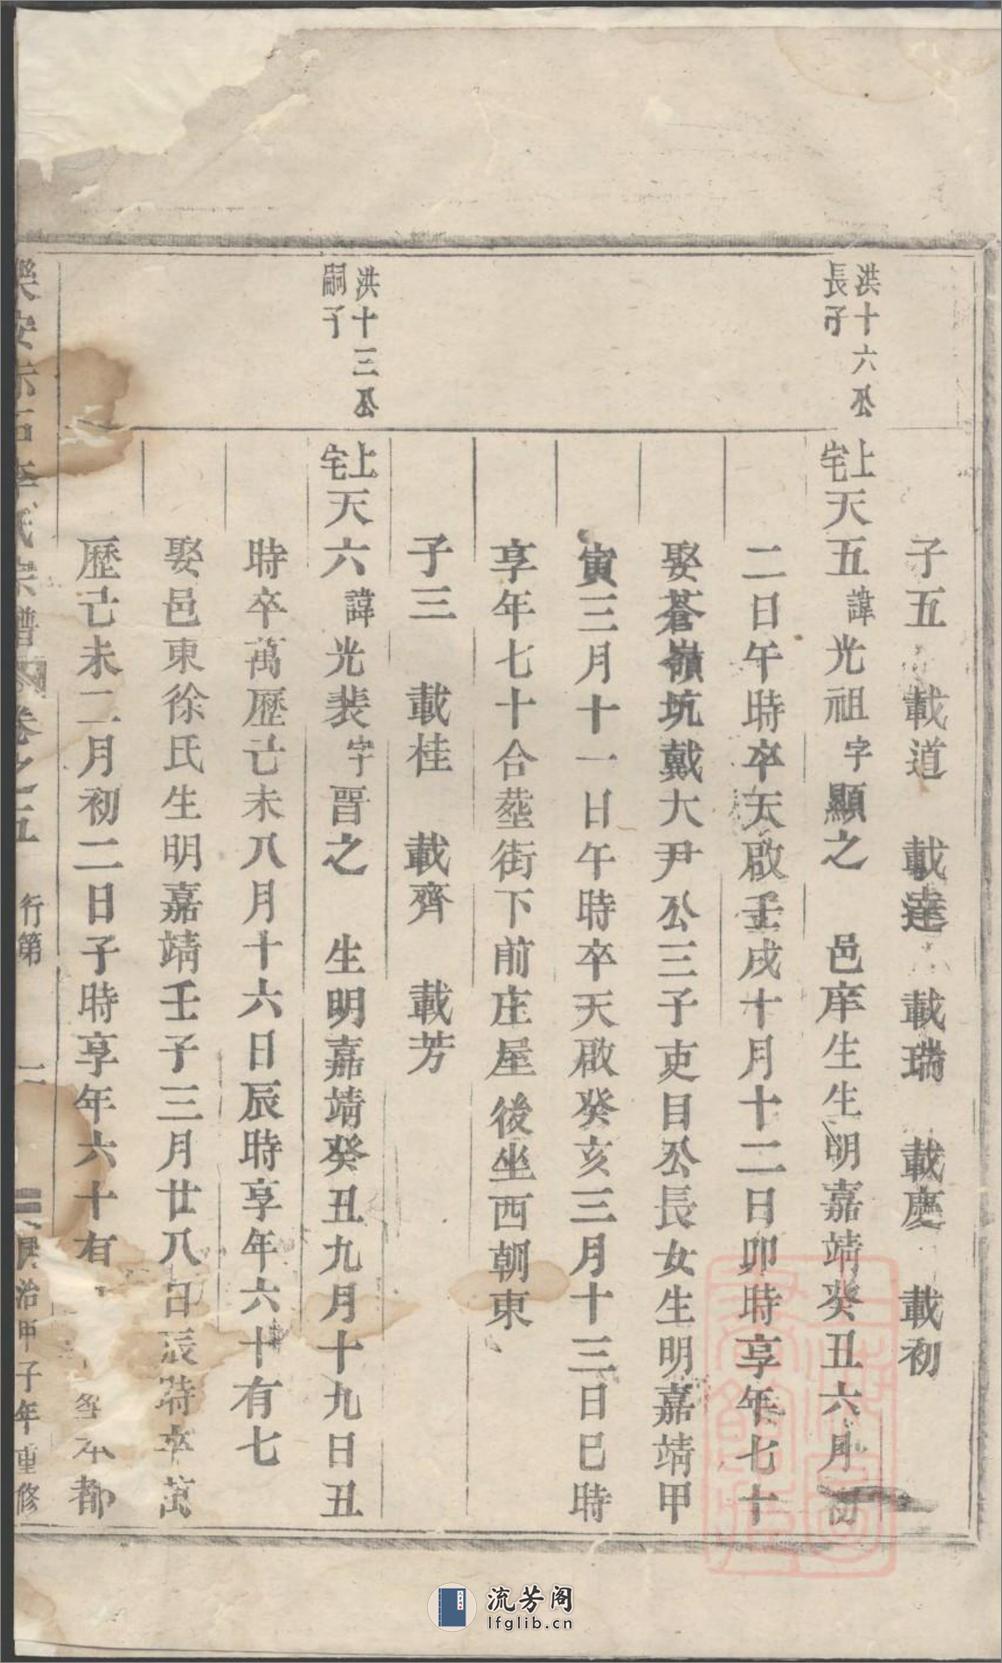 子五 載道 載達 載瑞 載慶 載初
洪十六公
長子
上宅天五諱光祖字顯之 邑庠生生明嘉靖癸丑六月初
二日午時卒天啟壬戌十月十二日卯時享年七十
娶蒼嶺坑戴大尹公三子吏目公長女生明嘉靖甲
寅三月十一日午時卒天啟癸亥三月十三日巳時
享年七十合塟街下前庄屋後坐西朝東
子三 載桂 載齊 載芳
洪十三公
嗣子
上宅天六諱光裴字晋之 生明嘉靖癸丑九月十九日丑
時卒萬歷己未八月十六日辰時享年六十有七
娶邑東徐氏生明嘉靖壬子三月廿八日辰時卒萬
歷己未二月初二日子時享年六十有 本都
樂安 李氏宗譜 卷之五 行第 二 民治甲子年重修
流芳阁
lfglib.cn